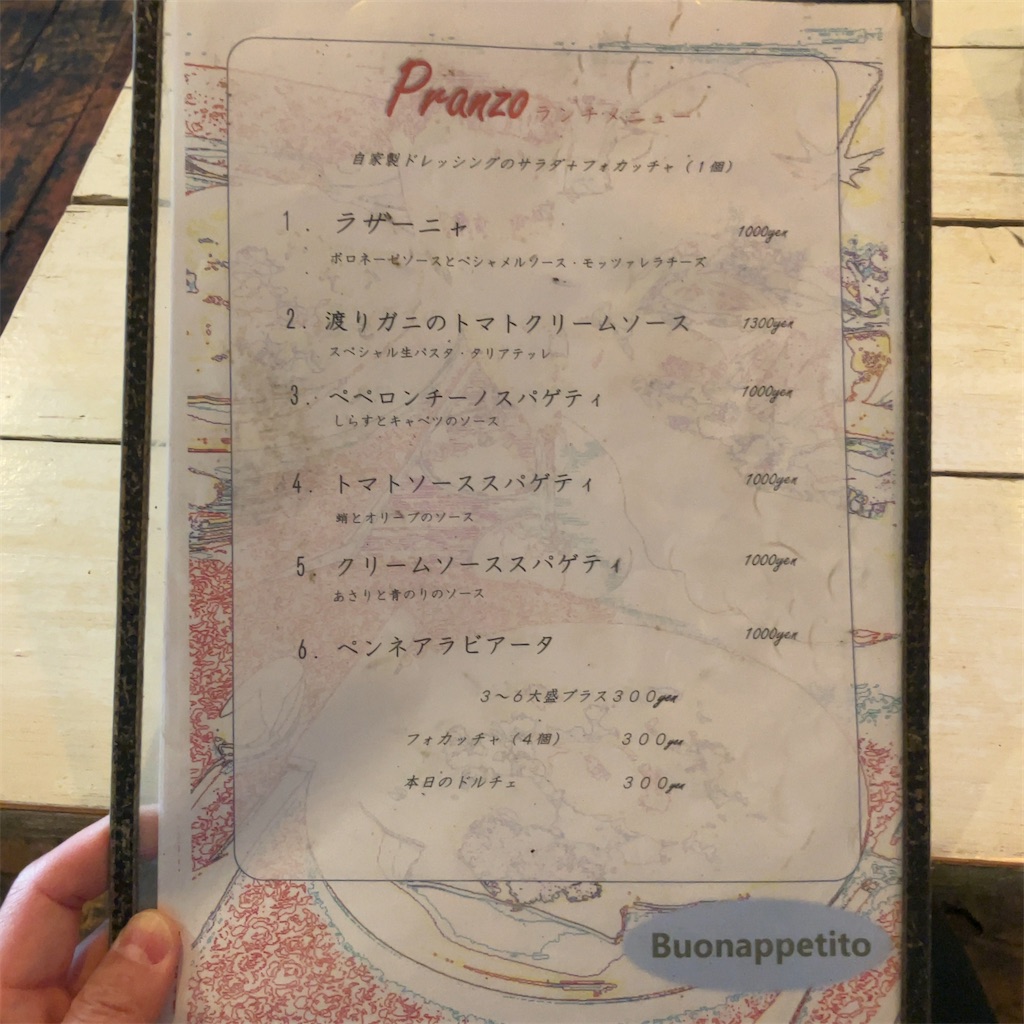 Pranzo ランチメニュー
自家製ドレッシングのサラダ+フォカッチャ（1個）
1. ラザーニャ 1000yen
ボロネーゼソースとベシャメルソース・モッツァレラチーズ
2. 渡りガニのトマトクリームソース 1300yen
スペシャル生パスタ・タリアテッレ
3. ペペロンチーノスパゲティ 1000yen
しらすとキャベツのソース
4. トマトソーススパゲティ 1000yen
蛸とオリーブのソース
5. クリームソーススパゲティ 1000yen
あさりと青のりのソース
6. ペンネアラビアータ 1000yen
３～６大盛プラス３００yen
フォカッチャ（４個） ３００yen
本日のドルチェ ３００yen
Buonappetito